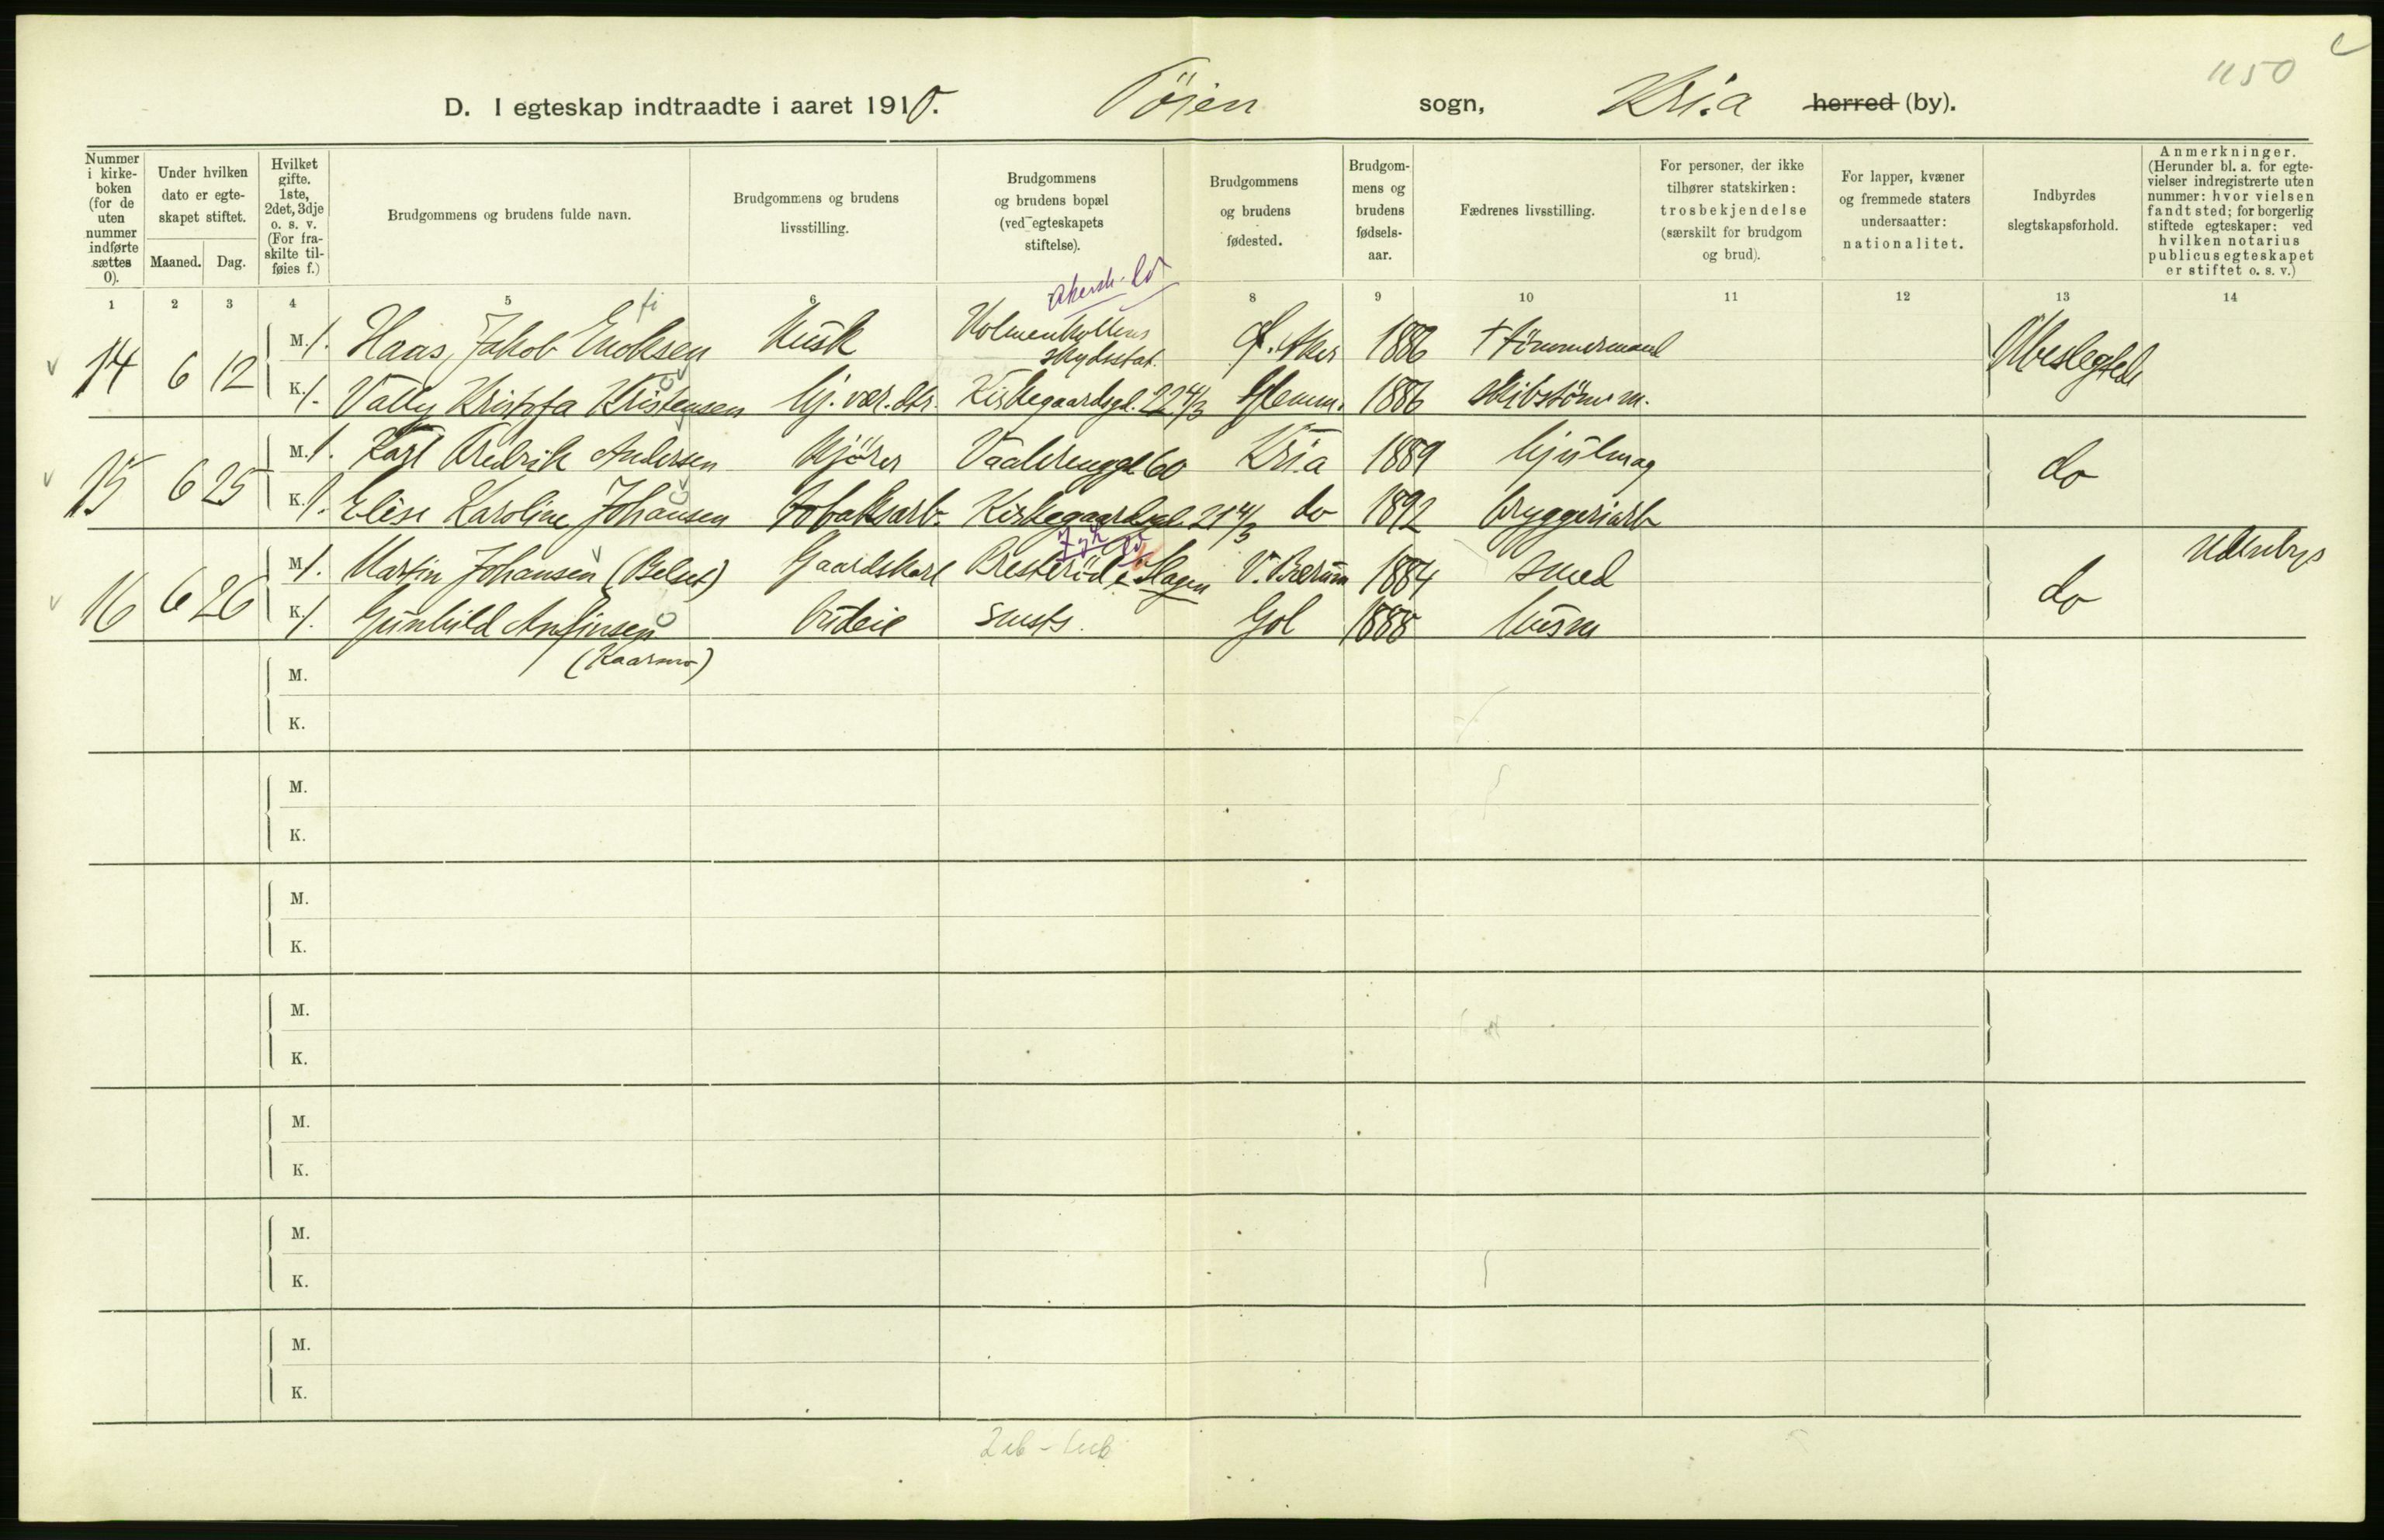 1150
D. I egteskap indtraadte i aaret 1910. Tøien sogn, Kr.a herred (by).
Nummer i kirkeboken (for de uten nummer indførte sættes 0).
Under hvilken dato er egteskapet stiftet.
Maaned. Dag.
Hvilket gifte. 1ste, 2det, 3dje o. s. v. (For fraskilte tilføies f.)
Brudgommens og brudens fulde navn.
Brudgommens og brudens livsstilling.
Brudgommens og brudens bopæl (ved egteskapets stiftelse).
Brudgommens og brudens fødested.
Brudgommens og brudens fødselsaar.
Fædrenes livsstilling.
For personer, der ikke tilhører statskirken: trosbekjendelse (særskilt for brudgom og brud).
For lapper, kvæner og fremmede staters undersaatter: nationalitet.
Indbyrdes slegtskapsforhold.
Anmerkninger. (Herunder bl. a. for egtevielser indregistrerte uten nummer: hvor vielsen fandt sted; for borgerlig stiftede egteskaper: ved hvilken notarius publicus egteskapet er stiftet o. s. v.)
1 2 3 4 5 6 8 9 10 11 12 13 14
14 6 12 M. 1. Haas, Jakob Enoksen Kusk Holmenkollens skydsstat. Aker 1886 † tømmermand Ubeslegtede
K. 1. Vally Kristofa Kristensen hj. vær. dtr. Kirkegaardsgt. 22 4/3 Glemm. 1886 skibstømm.
15 6 25 M. 1. Karl Fredrik Andersen Kjører Vaalerenggt 60 Kr.a 1889 hjulmag do
K. 1. Elise Karoline Johansen tobaksarb. Kirkegaardsgt. 21 4/3 do 1892 bryggeriarb
16 6 26 M. 1. Martin Johansen (Belset) Gaardskarl Presterød i Slagen V. Bærum 1884 smed do Udenbys
K. 1. Gunhild Anfinsen Budeie smsts. Gol 1888 husm
(Kaarmo)
M.
K.
M.
K.
M.
K.
M.
K.
M.
K.
M.
K.
M.
K.